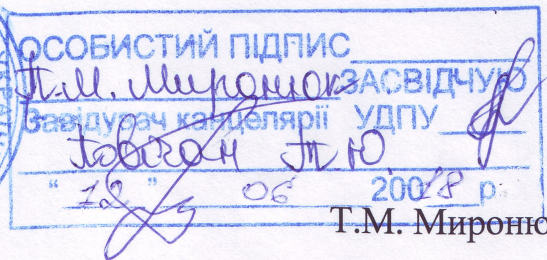 ОСОБИСТИЙ ПІДПИС
Т.М. Миронюк ЗАСВІДЧУЮ
Завідувач канцелярії УДПУ
Т Ю
" 12 " 06 20018 р.
Т.М. Мироню